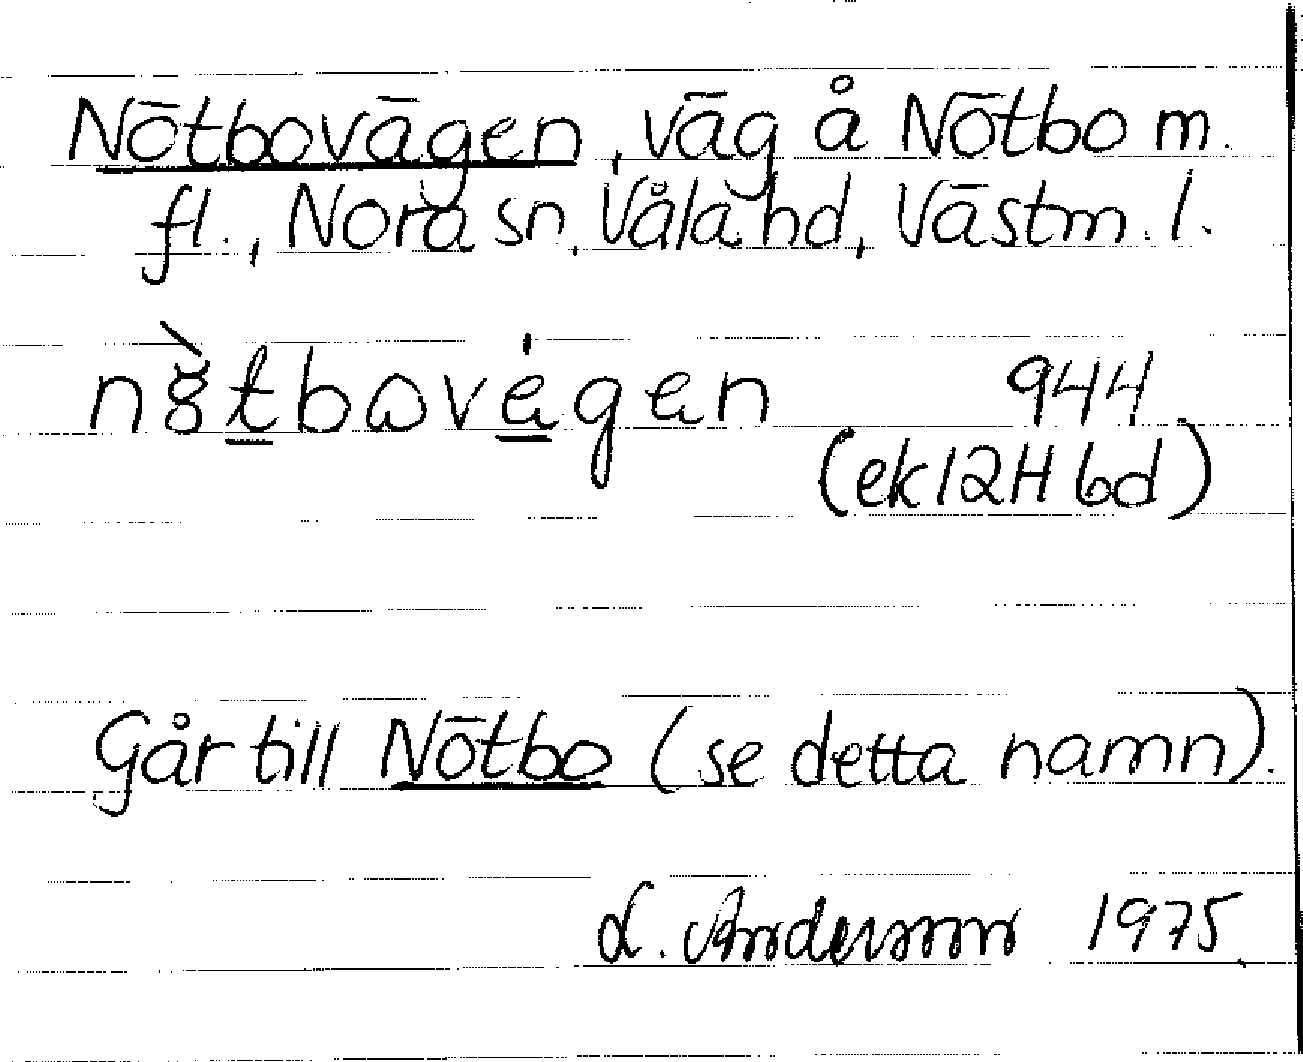 Nötbovägen, väg å Nötbo m.
fl., Nora sn, Våla hd, Västm. l.
944
(ek 12H 6d)
Går till Nötbo (se detta namn).
L. Andersson 1975.